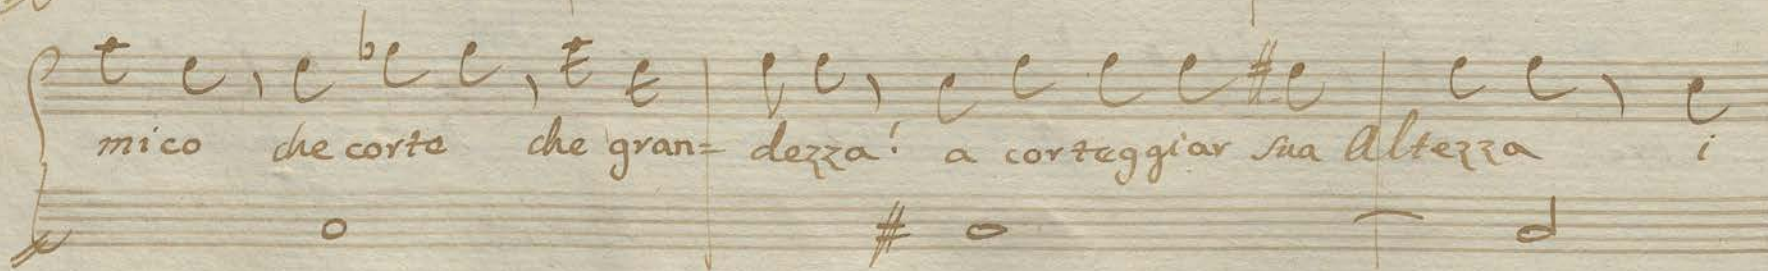 mico che corte che gran= dezza! a corteggiar sua Altezza i